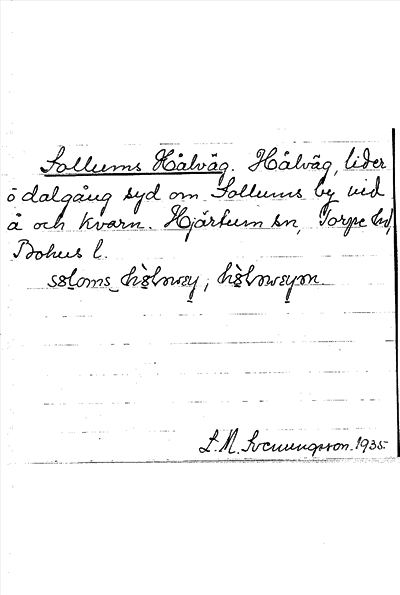 Sollums Hålväg. Hålväg, lider
ö dalgång syd om Sollums by vid
å och kvarn. Hjärtum sn, Torpe hd,
Bohus l.
L. M. Svenungsson 1935